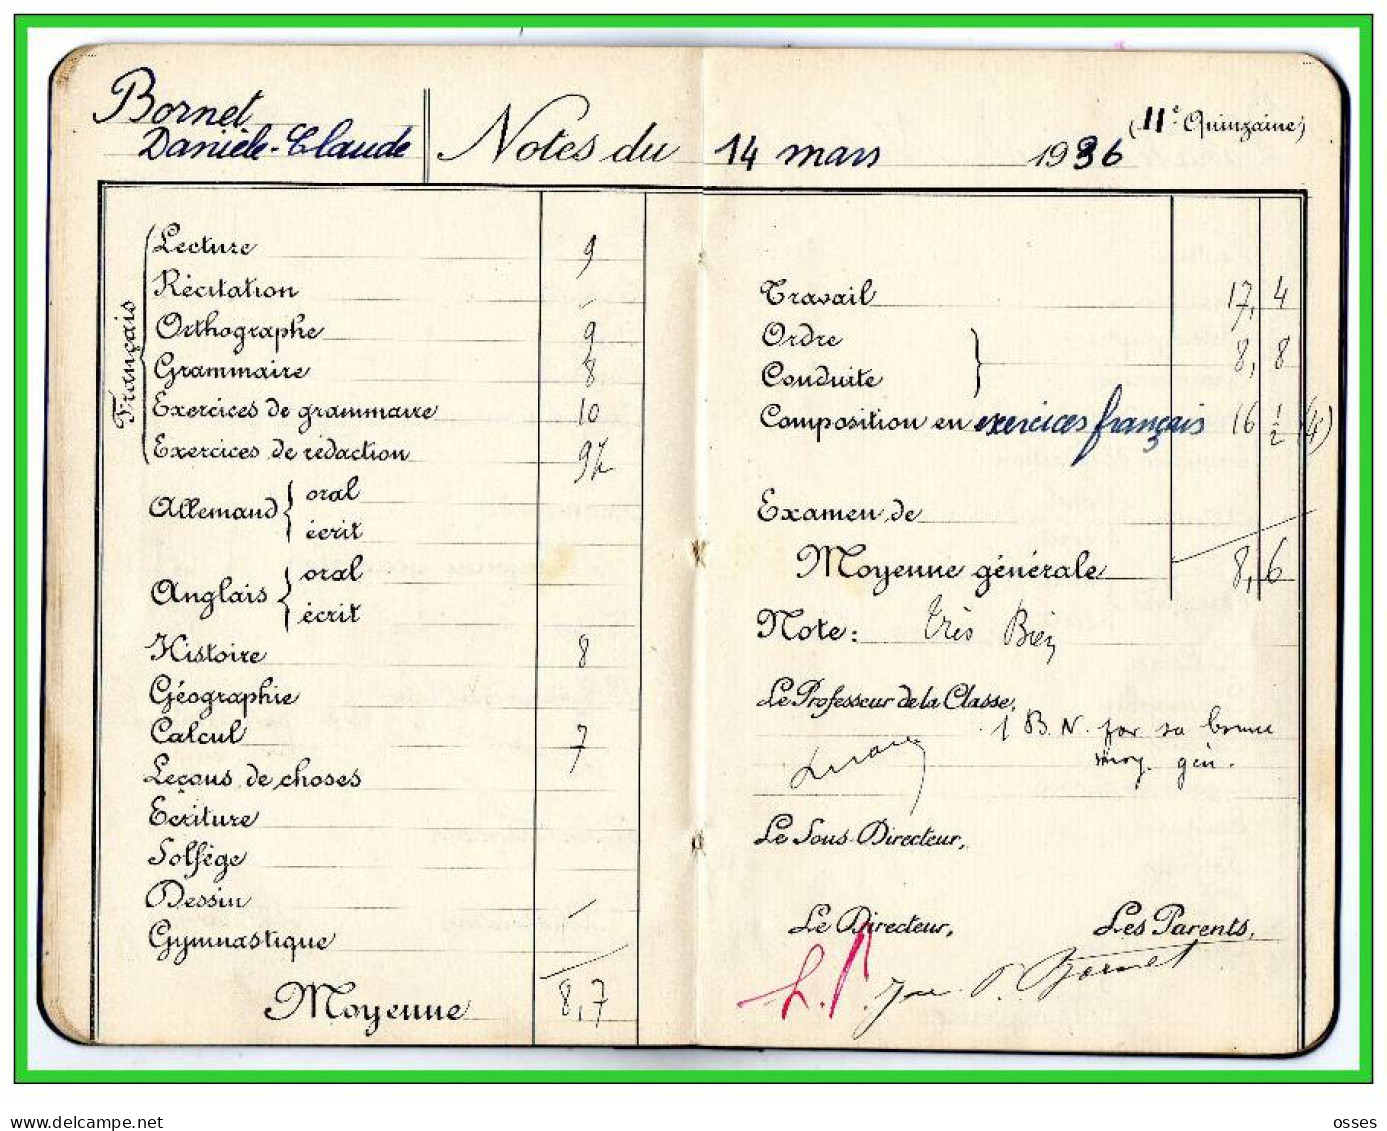 Bornet
Danièle-Claude
Notes du 14 mars 1936 (11e Quinzaine)
Français
Lecture 9
Récitation -
Orthographe 9
Grammaire 8
Exercices de grammaire 10
Exercices de rédaction 9½
Allemand { oral
écrit
Anglais { oral
écrit
Histoire 8
Géographie
Calcul 7
Leçons de choses
Ecriture
Solfège
Dessin -
Gymnastique
Moyenne 8,7
Travail 17,4
Ordre
Conduite } 8,8
Composition en exercices français 16 ½ (4)
Examen de
Moyenne générale 8,6
Note: Très Bien
Le Professeur de la Classe,
1 B.N. pour sa bonne
moy. gén.
Le Sous-Directeur,
Le Directeur, Les Parents,
P. Bornet
delcampe.net
osses